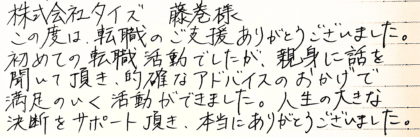 株式会社タイズ 藤巻様
この度は、転職のご支援ありがとうございました。
初めての転職活動でしたが、親身に話を
聞いて頂き、的確なアドバイスのおかげで
満足のいく活動ができました。人生の大きな
決断をサポート頂き、本当にありがとうございました。